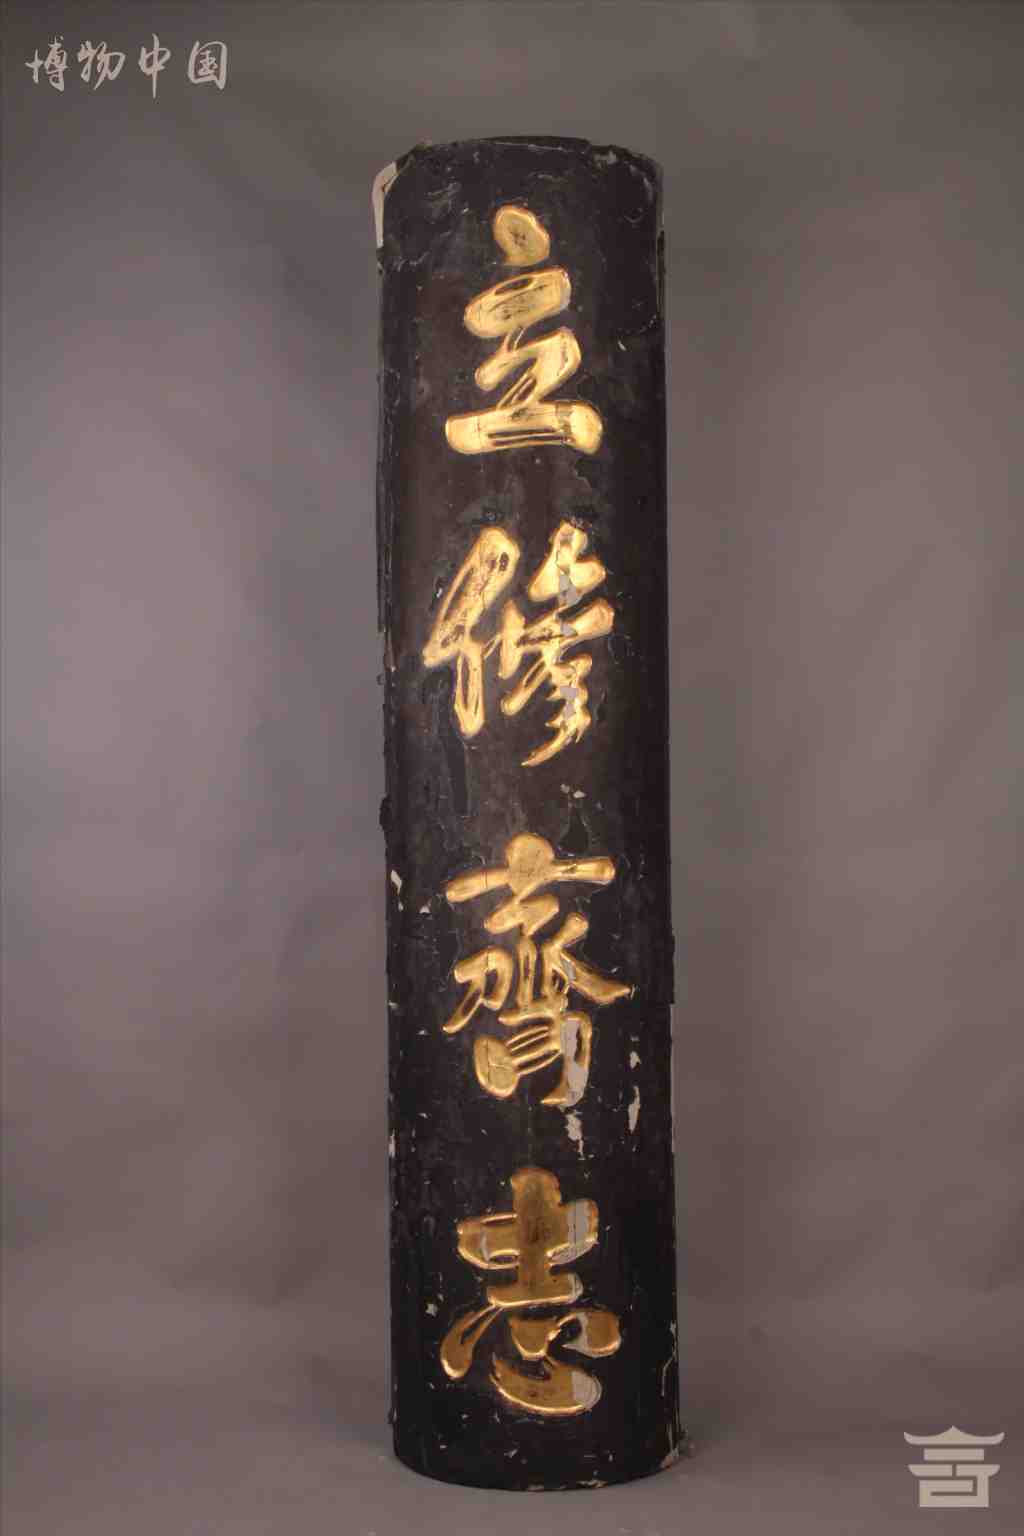 博物中国
立修齊志